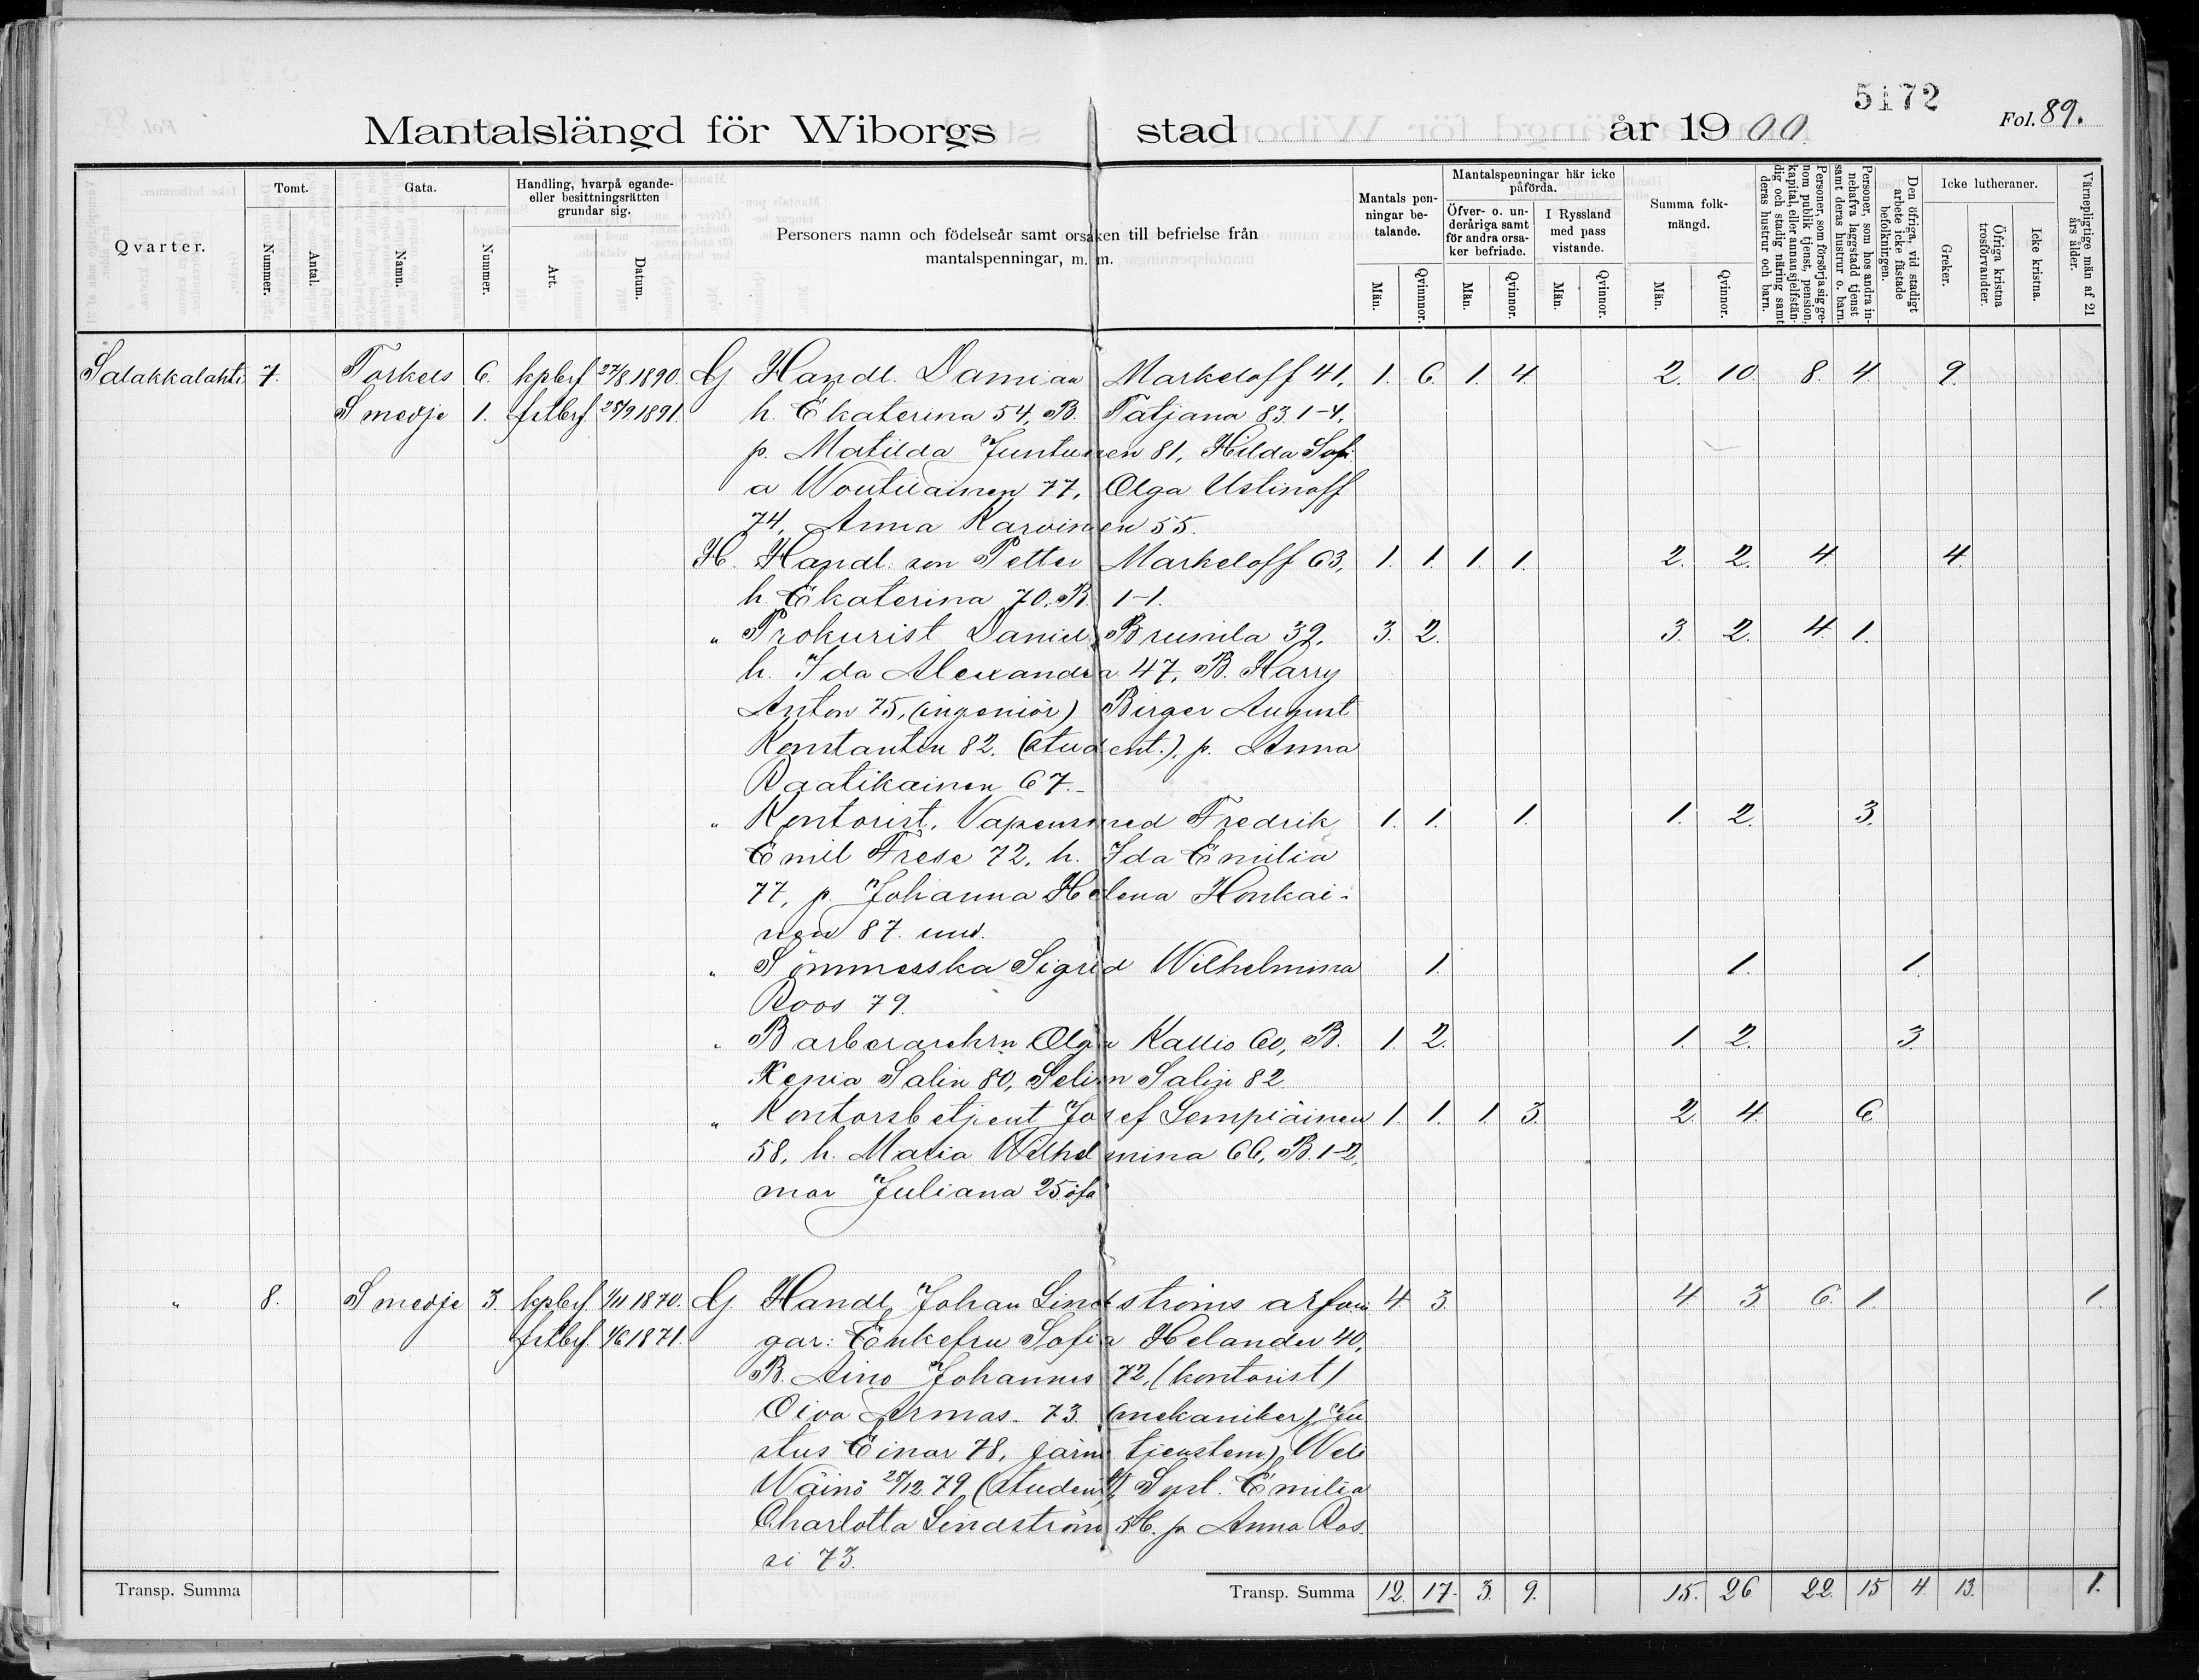 5172
Fol. 89.
Mantalslängd för Wiborgs stad år 1900.
Qvarter.
Tomt.
Nummer.
Antal.
Gata.
Namn.
Nummer.
Handling, hvarpå egande- eller besittningsrätten grundar sig.
Art.
Datum.
Personers namn och födelseår samt orsaken till befrielse från mantalspenningar, m. m.
Mantals penningar betalande.
Män.
Qvinnor.
Mantalspenningar här icke påförda.
Öfver- o. underåriga samt för andra orsaker befriade.
Män.
Qvinnor.
I Ryssland med pass vistande.
Män.
Qvinnor.
Summa folkmängd.
Män.
Qvinnor.
Personer, som försörja sig genom publik tjenst, pension, kapital, eller annan sjelfständig och stadig näring samt deras hustrur och barn.
Personer, som hos andra innehafva laggstadd tjenst samt deras hustrur o. barn.
Den öfriga, vid stadigt arbete icke fästade befolkningen.
Icke lutheraner.
Greker.
Öfriga kristna trosförvandter.
Icke kristna.
Värnepligtige män af 21 års ålder.
Salakkalahti 7. Torkels 6. kpbrf. 27/8 1890. G Handl. Damian Markeloff 41, 1. 6. 1. 4. 2. 10. 8. 4. 9.
Smedje 1. fstbrf. 28/9 1891. h. Ekaterina 54, B. Tatjana 83 1-4,
p. Matilda Juntunen 81, Hilda Sofi
a Woutilainen 77, Olga Ustinoff
74, Anna Karvinen 55.
H. Handl. son Petter Markeloff 63, 1. 1. 1. 1. 2. 2. 4. 4.
h. Ekaterina 70. B. 1-1.
" Prokurist Daniel Brusila 39. 3. 2. 3. 2. 4. 1.
h. Ida Alexandra 47, B. Harry
Anton 75, (ingeniör) Birger August
Konstantin 82. (student.), p. Anna
Raatikainen 67.-
" Kontorist, Vapensmed Fredrik 1. 1. 1. 1. 2. 3.
Emil Frese 72, h. Ida Emilia
77, p. Johanna Helena Honkai-
nen 87. und.
" Sömmerska Sigrid Wilhelmina 1. 1. 1.
Roos 79.
" Barberarehru Olga Kallio 60, B. 1. 2. 1. 2. 3.
Xenia Salin 80, Selim Salin 82
" Kontorsbetjent Josef Lempiäinen 1. 1. 1. 3. 2. 4. 6
58, h. Maria Wilhelmina 66, B. 1-2,
mor Juliana 25 öfa
" 8. Smedje 3. kpbrf. 1/11 1870. G. Handl. Johan Lindströms arfvin 4. 3. 4. 3 6. 1. 1.
fstbrf. 1/6 1871. gar: Enkefru Sofia Helander 40,
B. Aino Johannes 72, (kontorist)
Oiva Armas. 73 (mekaniker), Ju
stus Einar 78, järnv. tjenstem), Weli
Wäinö 28/12 79 (student), Syst. Emilia
Charlotta Lindström 56. p. Anna Ros
si 73.
Transp. Summa
Transp. Summa 12. 17. 3. 9. 15. 26 22. 15 4. 13. 1.